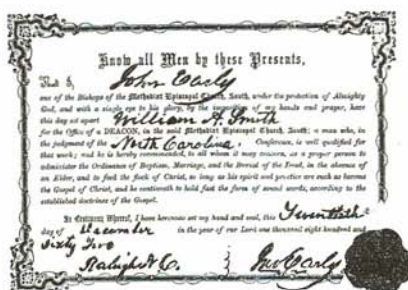 Know all Men by these Presents,
That I, John Early
one of the Bishops of the Methodist Episcopal Church, South, under the protection of Almighty
God, and with a single eye to his glory, by the imposition of my hands and prayer, have
this day set apart William A. Smith
for the Office of a DEACON, in the said Methodist Episcopal Church, South; a man who, in
the judgment of the North Carolina Conference, is well qualified for
that work; and he is hereby recommended, to all whom it may concern, as a proper person to
administer the Ordinances of Baptism, Marriage, and the Burial of the Dead, in the absence of
an Elder, and to feed the flock of Christ, so long as his spirit and practice are such as become
the Gospel of Christ, and he continueth to hold fast the form of sound words, according to the
established doctrines of the Gospel.
In Testimony Whereof, I have hereunto set my hand and seal, this Twentieth
day of December in the year of our Lord one thousand eight hundred and
Sixty Two
Raleigh N C. Jno Early